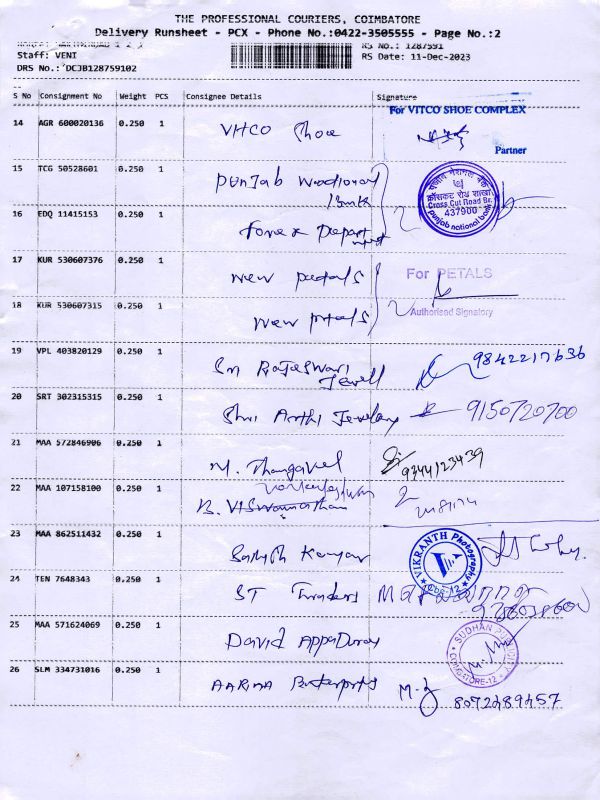 THE PROFESSIONAL COURIERS, COIMBATORE
Delivery Runsheet - PCX - Phone No.:0422-3505555 - Page No.:2
RS No.: 1287591
Staff: VENI
RS Date: 11-Dec-2023
DRS No.: DCJB128759102
S No Consignment No Weight PCS Consignee Details Signature
For VITCO SHOE COMPLEX
14 AGR 600020136 0.250 1 VITCO Shoe
Partner
15 TCG 50528601 0.250 1 Punjab National
Bank
क्रॉसकट रोड शाखा
Cross Cut Road Br.
437900
punjab national bank
16 EDQ 11415153 0.250 1 Forex Depart
ment
17 KUR 530607376 0.250 1 New petals
For PETALS
18 KUR 530607315 0.250 1 New petals
Authorised Signatory
19 VPL 403820129 0.250 1 Sri Rajeswari
Jewell
20 SRT 302315315 0.250 1 Shri Arthi Jewelery 9150720700
21 MAA 572846906 0.250 1 M. Thangavel 9344123439
22 MAA 107158100 0.250 1 B. Viswanathan
23 MAA 862511432 0.250 1
VIKRANTH Photography
CBE-12
24 TEN 7648343 0.250 1 ST Traders
25 MAA 571624069 0.250 1 David Appaduray
SUDHAN
COIMBATORE-12
26 SLM 334731016 0.250 1